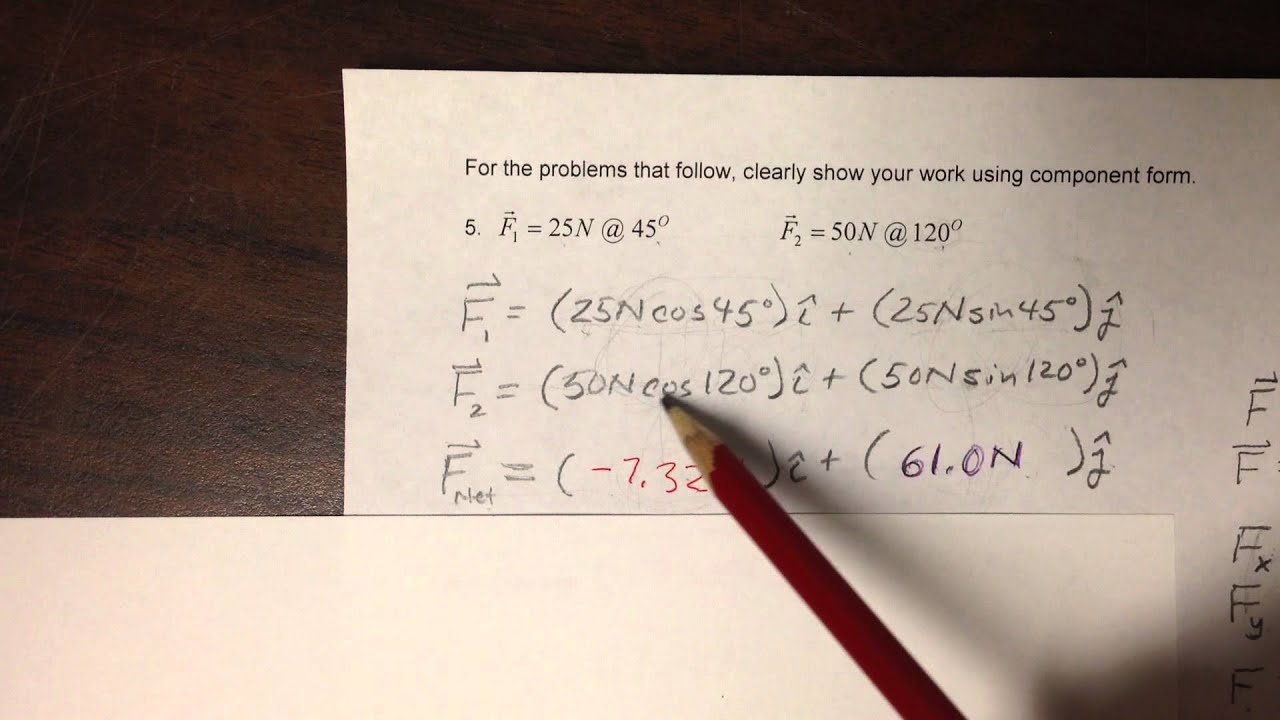 For the problems that follow, clearly show your work using component form.
5. F⃗₁ = 25N @ 45° F⃗₂ = 50N @ 120°
F⃗₁ = (25N cos 45°) î + (25N sin 45°) ĵ
F⃗₂ = (50N cos 120°) î + (50N sin 120°) ĵ
F⃗Net = ( -7.32 ) î + ( 61.0N ) ĵ
F⃗
F⃗
Fx
Fy
F